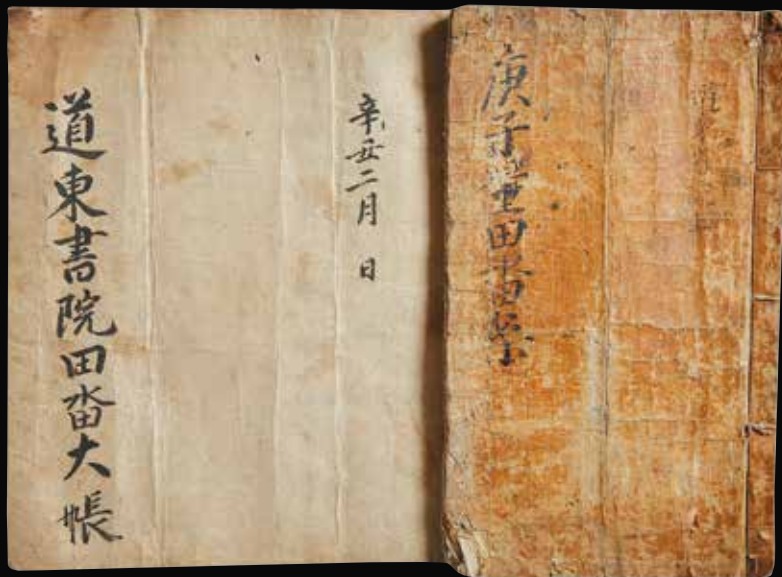 庚子量田
辛丑二月 日
道東書院田畓大帳